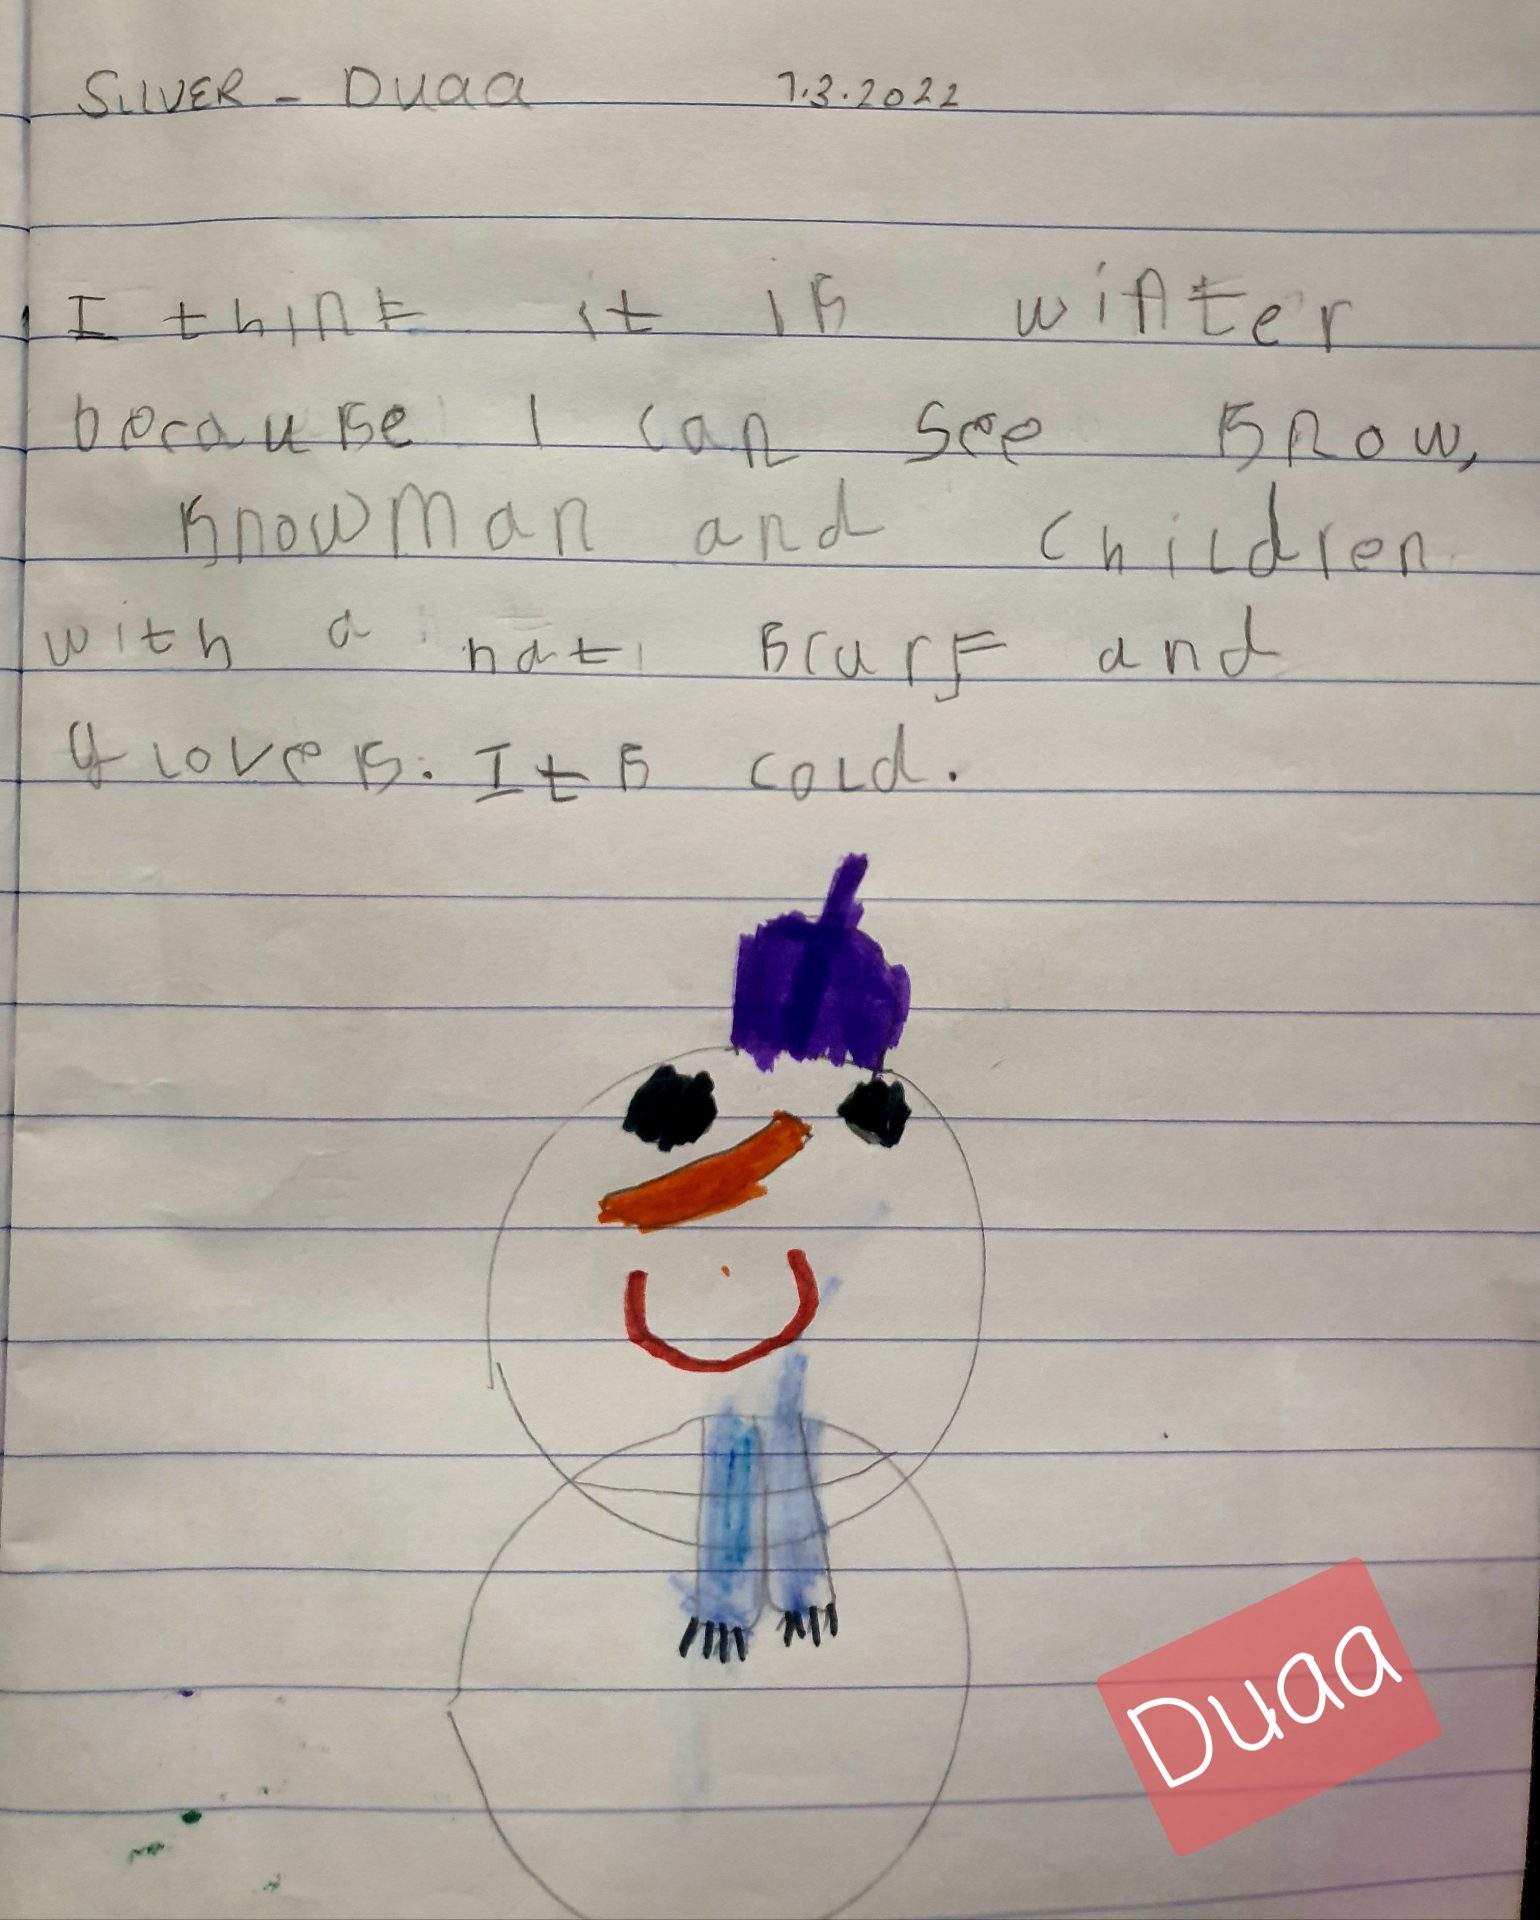 SILVER - Duaa 7.3.2022
I think it is winter
because I can see snow,
snowman and children
with a hat, scarf and
gloves. Its cold.
Duaa